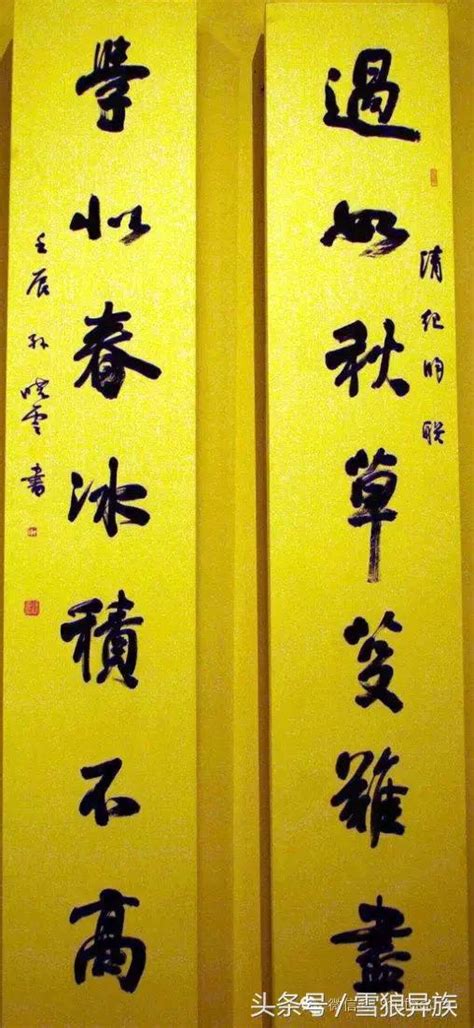 過如秋草芟難盡
清纪昀联
學似春冰積不高
壬辰孙晓雲書
微信
头条号 / 雪狼异族